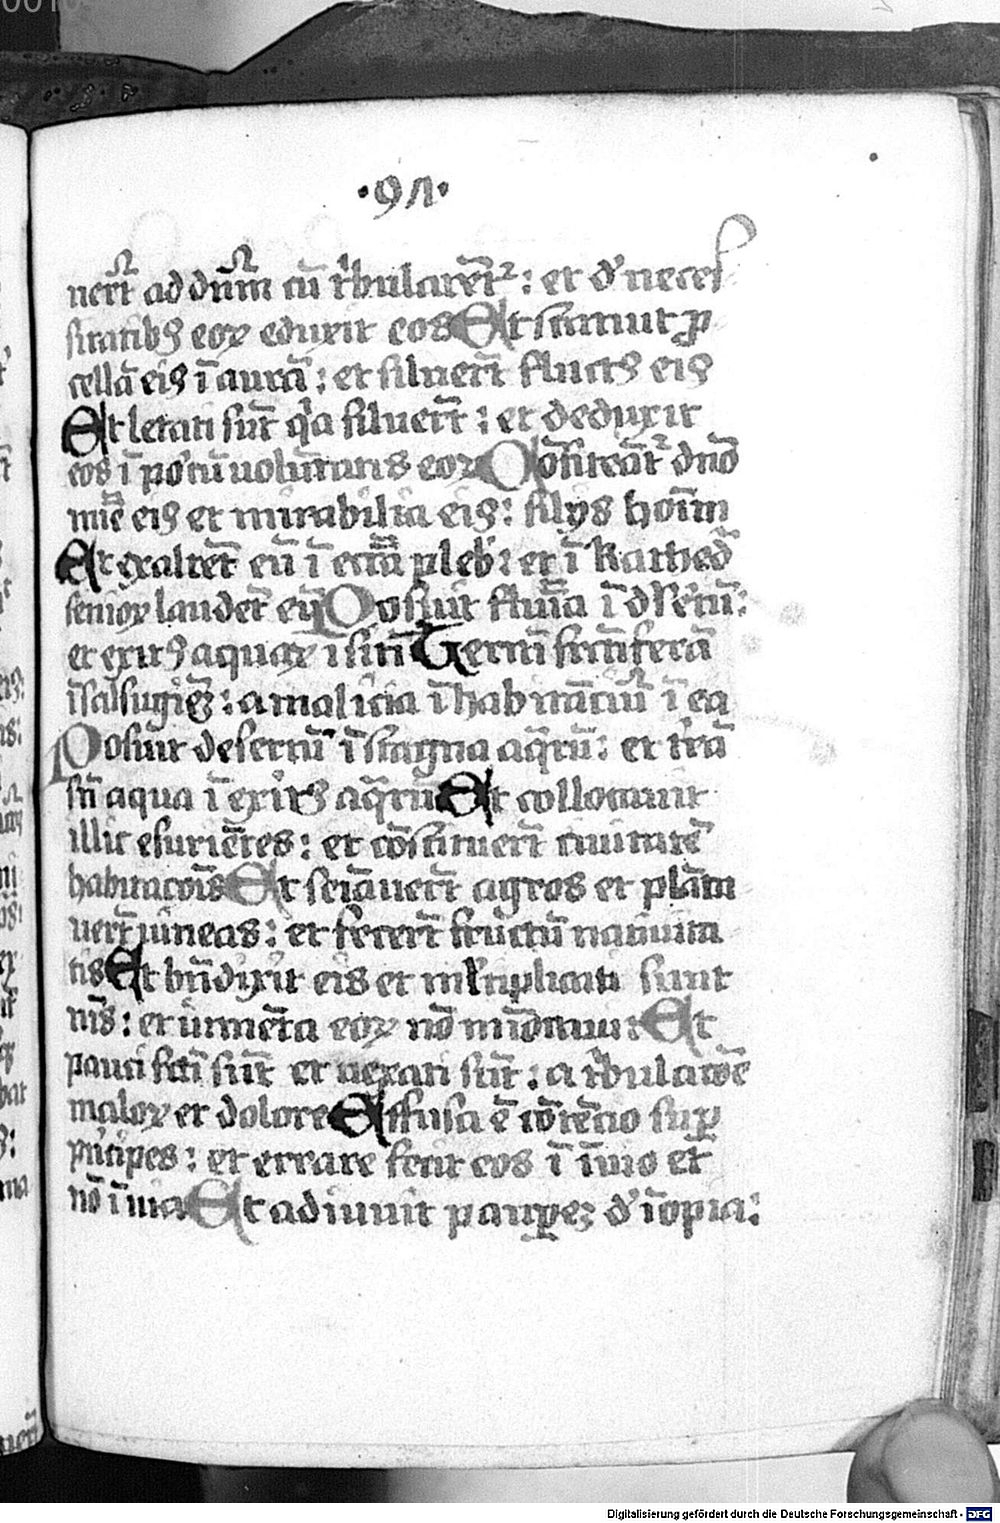 ·91·
uert̄ ad dn̄m cū tͥbularēt᷑ : et d' neces
sitatibꝰ eoꝝ eduxit eos Et statuit ꝓ
cellā eiꝰ ī aurā : et siluert̄ fluctꝰ eiꝰ
Et letati sūt qͥa siluert̄ : et deduxit
eos ī portū uolūtatis eoꝝ Cōfiteāt᷑ dn̄o
mīe eiꝰ et mirabilia eiꝰ : filijs hoīm
Et exaltēt eū ī eccīa pleb' : et ī kathed̄
senioꝝ laudēt eū Posuit flumīa ī dʼsertū :
et exitꝰ aquaꝝ ī sitī Terrā fructiferā
ī salsugiēꝫ : a malicia īhabitāciū ī ea
Posuit desertū ī stagna aq̄rū : et trā
sn̄ aqua ī exitꝰ aq̄rū Et collocauit
illic esuriētes : et cōstituert̄ ciuitatē
habitacōis Et seīauert̄ agros et plāta
uert̄ uineas : et fecert̄ fructū natiuita
tis Et bn̄dixit eis et ml̕tiplicati sunt
nīs : et iumēta eoꝝ nō mīorauit Et
pauci fcī sūt et uexati sūt : a tͥbulacōe
maloꝝ et dolore Effusa ē cōtēcio suꝑ
pͥncipes : et errare fecit eos ī īuio et
nō ī uia Et adiuuit pauꝑeꝫ d' īopia :
Digitalisierung gefördert durch die Deutsche Forschungsgemeinschaft - DFG